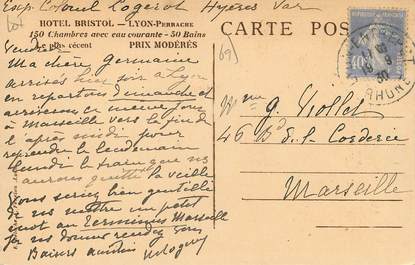 Exp. Colonel Logerot Hyères Var
HOTEL BRISTOL — LYON-PERRACHE
150 Chambres avec eau courante - 50 Bains
Le plus récent PRIX MODÉRÉS
CARTE POS
(69)
Vendredi
Ma chère Germaine
arrivés hier soir à Lyon
en repartons dimanche et
arriverons ce même jour
à Marseille vers la fin de
l'après midi pour
reprendre le lendemain
lundi le train que ns
aurons quitté la veille
Vous seriez bien gentille
de ns mettre un petit
mot au Terminus Marseille
pour ns donner rendez vous
Baisers
Mme G. Viollet
46 Bd de la Corderie
Marseille
RHONE